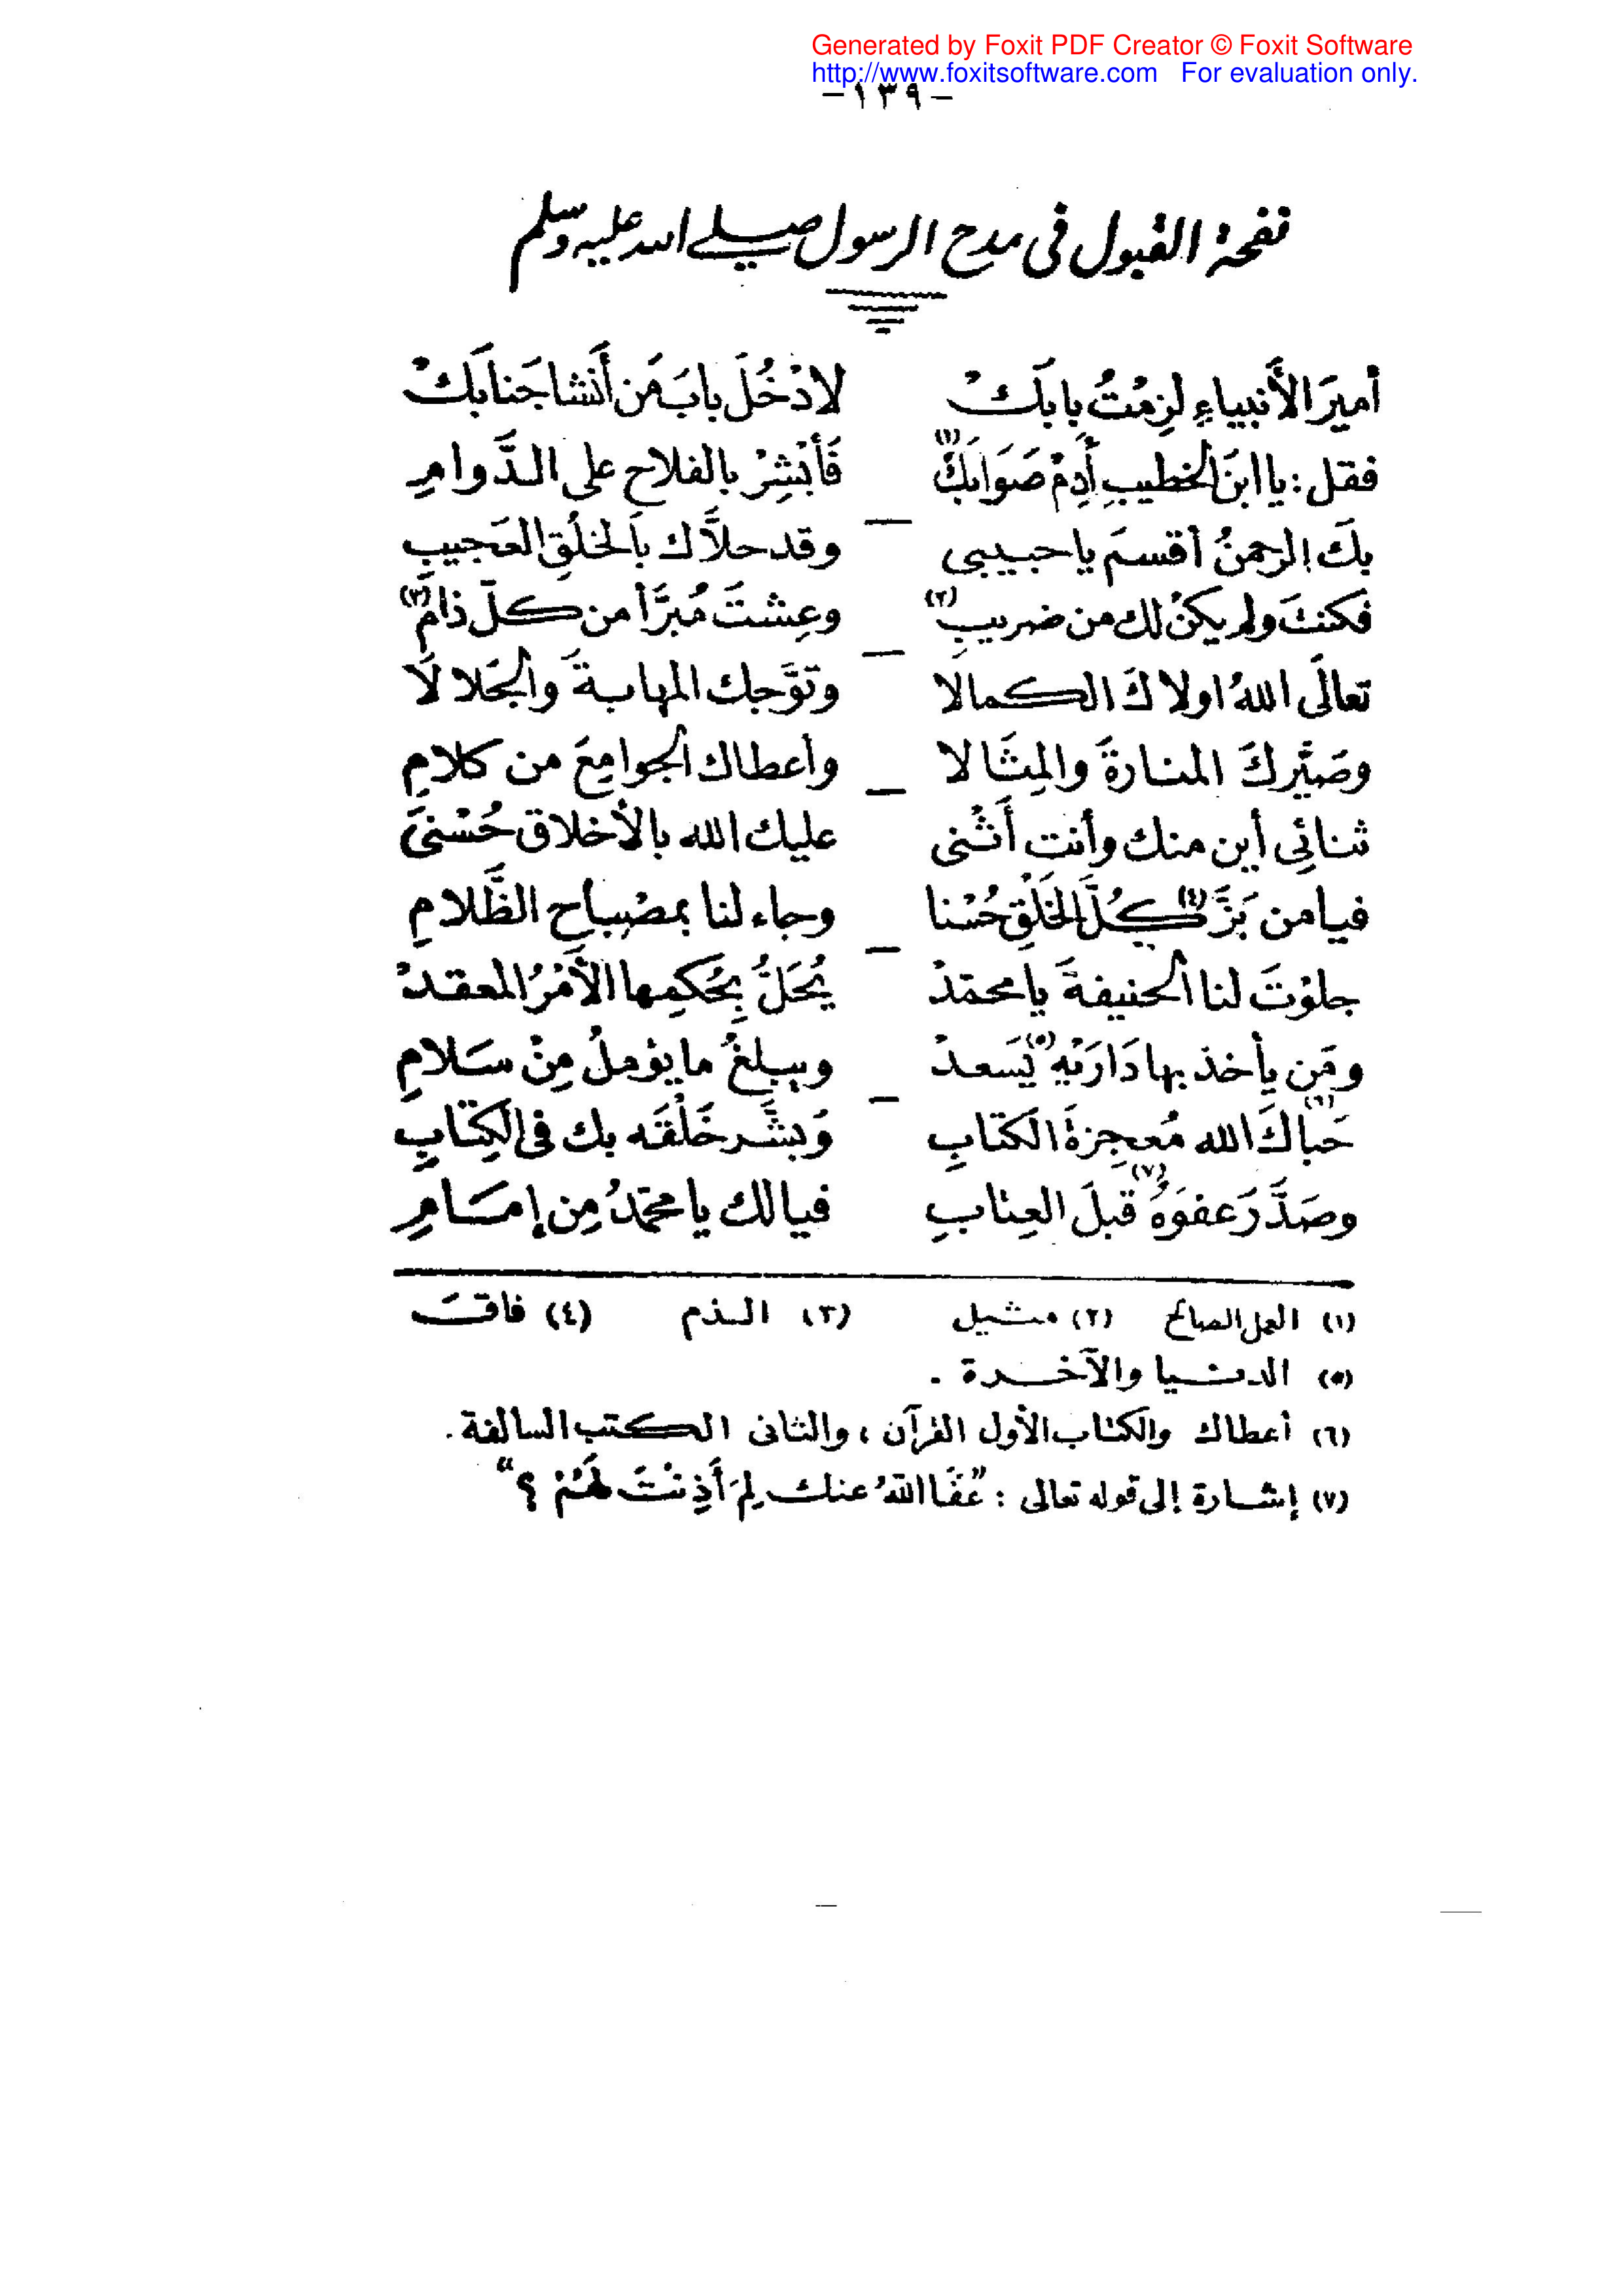 Generated by Foxit PDF Creator © Foxit Software
http://www.foxitsoftware.com For evaluation only.
-١٣٩-
نفحة القبول فى مدح الرسول صلى الله عليه وسلم
أميرَ الأَنبياءِ لزِمْتُ بابَكْ لادْخُلَ بابَ مَن أَنشا جَنابَكْ
فقل: يا ابنَ الخطيبِ أَدِمْ صَوَابَكْ (١) فَأَبْشِرْ بالفلاحِ على الدَّوامِ
بكَ الرحمنُ أقسمَ يا حبيبى وقد حلاَّك بالخلُقِ العَجيبِ
فكنتَ ولم يكنْ لك من ضريبٍ (٢) وعِشتَ مُبرَّأ من كلّ ذامِ (٣)
تعالَى اللهُ اولاكَ الكمالا وتوَّجك المهابةَ والجَلالَا
وصَيَّركَ المنارةَ والمِثَالا وأعطاك الجوامِعَ من كلامِ
ثنائِى أين منك وأنت أَثْنى عليك الله بالأخلاق حُسْنَى
فيامن بَزَّ (٤) كُلَّ الخَلْقِ حُسْنا وجاء لنا بمصْباحِ الظَّلامِ
جلوْتَ لنا الحنيفةَ يا محمّدْ يُحَلُّ بِحُكمِها الأَمْرُ المعقدْ
ومَن يأخذ بها دَارَيْهِ (٥) يَسعدْ ويبلغُ ما يؤملُ مِنْ سَلامِ
حَبَاكَ (٦) الله مُعجِزةَ الكتابِ وَبشَّر خَلْقَه بك فى الكِتابِ
وصَدَّرَ عفوَهُ (٧) قبلَ العِتابِ فيالك يا محمّدُ مِن إمَامِ
(١) العمل الصالح (٢) مثيل (٣) الذم (٤) فاقت
(٥) الدنيا والآخرة .
(٦) أعطاك والكتاب الأول القرآن ، والثانى الكتب السالفة .
(٧) إشارة إلى قوله تعالى : "عَفَا اللهُ عنك لِمَ أَذِنْتَ لَهُمْ ؟"